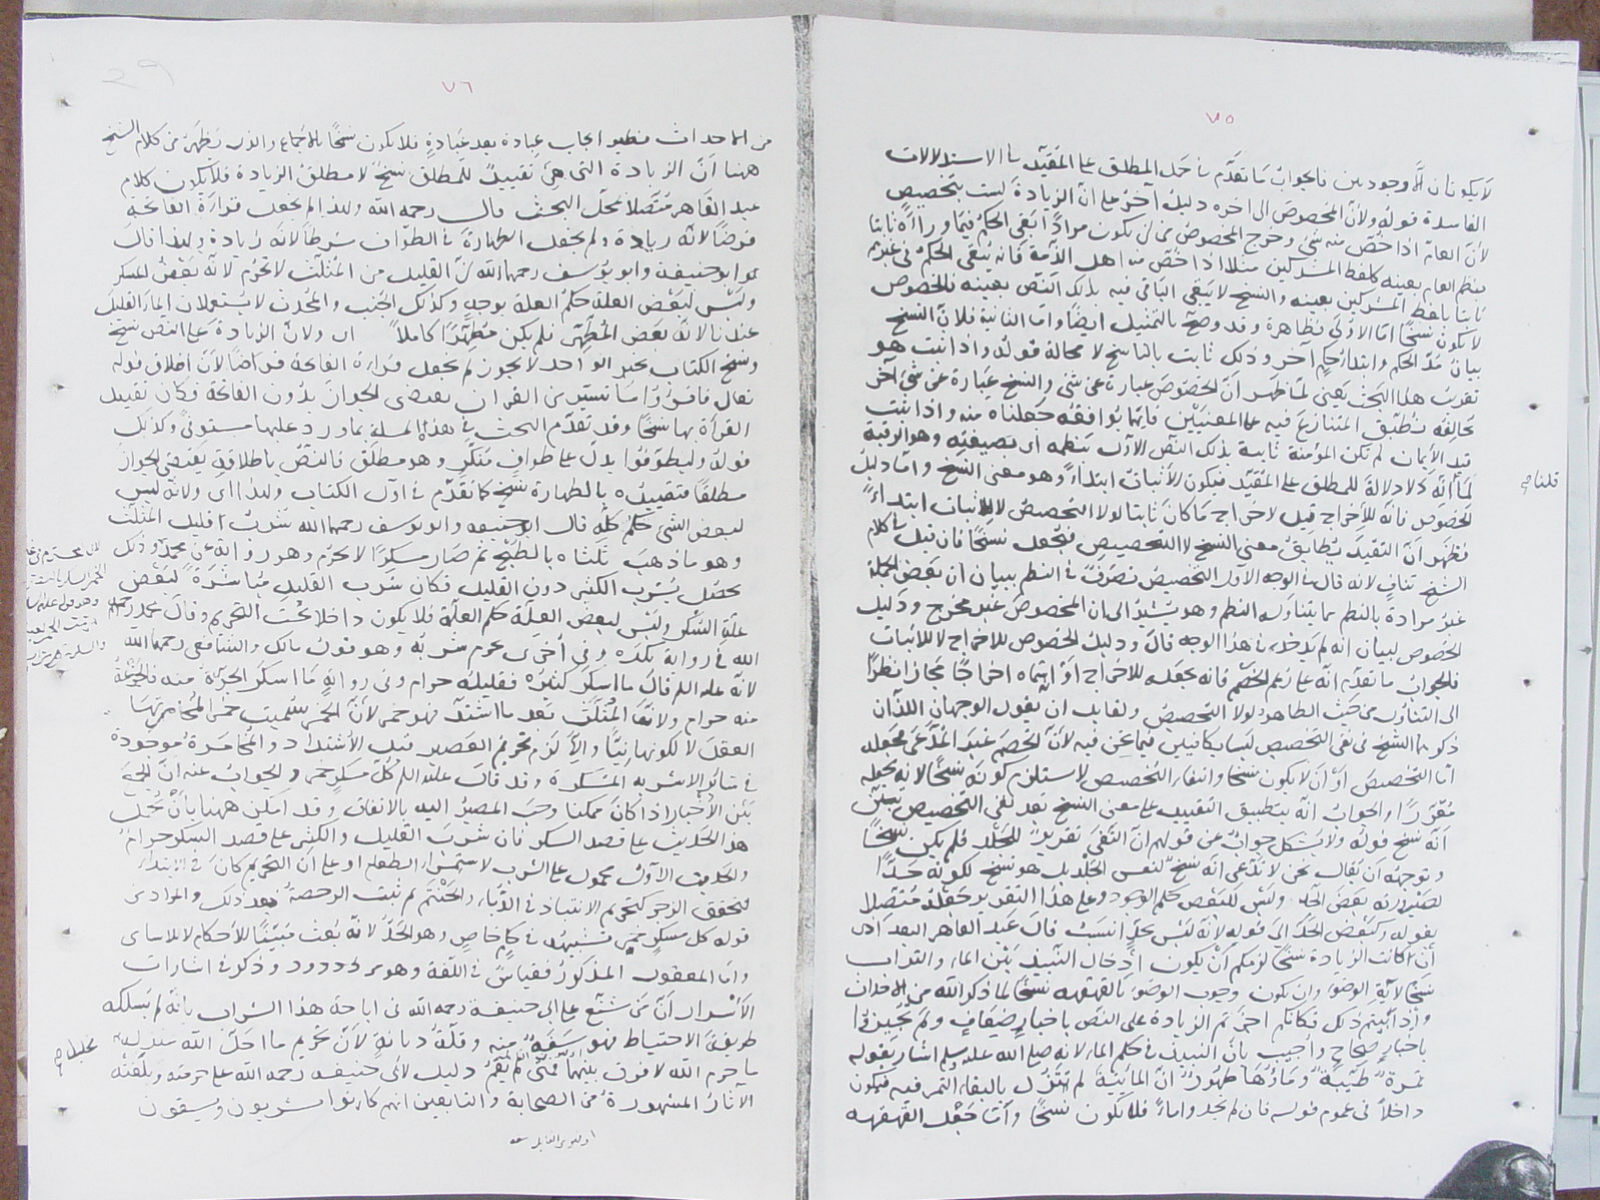 ٧٥
لا يكونان إلا وجوديين فالجواب ما تقدم في حمل المطلق على المقيد في الاستدلالات
الفاسدة قوله ولأن المخصوص الى اخره دليل آخر على ان الزيادة ليست بتخصيص
لأن العام اذا خص منه شئ وخرج المخصوص من ان يكون مرادًا بقي الحكم فيما وراءه ثابتا
بنظم العام بعينه كلفظ المشركين مثلا اذا خص منه اهل الذمة فانه يبقى الحكم في غيرهم
ثابتا بلفظ المشركين بعينه والنسخ لا يبقى الباقي فيه بذلك النص بعينه فالخصوص
لا يكون نسخًا اما الأولى فظاهرة وقد وضح بالتمثيل ايضًا واما الثانية فلأن النسخ
بيان مدة الحكم وابتداء حكم آخر وذلك ثابت بالناسخ لا محالة قوله واذا ثبت هو
تقريب هذا البحث يعني لما ظهر أن الخصوص عبارة عن شئ والنسخ عبارة عن شئ آخر
يخالفه نطبق المتنازع فيه على المعنيين فايهما يوافقه جعلناه منه واذا ثبت
قيد الأيمان لم تكن المؤمنة ثابتة بذلك النص الأول بنظمه اى بصيغته وهو الرقبة
لما أنه لا دلالة للمطلق على المقيد فيكون لأثبات ابتداءً وهو معنى النسخ واما دليل
الخصوص فانه للأخراج قيل لاخراج ما كان ثابتا لولا التخصيص لا للأثبات ابتداءً
فظهر أن التقييد يطابق معنى النسخ لا التخصيص فيجعل نسخًا فان قيل في كلام
الشيخ تناف لانه قال في الوجه الأول التخصيص تصرف في النظم ببيان ان بعض الجملة
غير مرادة بالنظم مما يتناوله النظم وهو يشير الى ان المخصوص غير مخرج ودليل
الخصوص لبيان انه لم يدخل وفي هذا الوجه قال ودليل الخصوص للاخراج لا للاثبات
فالجواب ما تقدم أنه على زعم الخصم فانه يجعله للاخراج أو سماه اخراجًا مجازا نظرًا
الى التناول من حيث الظاهر لولا التخصيص ولقائل ان يقول الوجهان اللذان
ذكرهما الشيخ في نفي التخصيص ليسا بكافيين فيما نحن فيه لأن الخصم عند المدعى يجعله
اما التخصيص أو أن لا يكون نسخًا وانتفاء التخصيص لا يستلزم كونه نسخًا لانه يجعله
مقررًا والجواب انه بتطبيق التقييد على معنى النسخ بعد نفي التخصيص تبين
أنه نسخ قوله ولا يشكل جواب عن قولهم ان النفي تقرير للجلد فلم يكن نسخًا
وتوجيهه أن يقال نحن لا ندعي انه نسخ لنفس الجلد بل هو نسخ لكونه حدًا
لصيرورته بعض الحد وليس للبعض حكم الوجود وعلى هذا التقدير جعله متصلا
بقوله وكبعض الحد الى قوله لانه ليس بحد انسب قال عبد القاهر البغدادي
ان كانت الزيادة نسخًا لزمكم أن يكون إدخال النبيذ بين الماء والتراب
نسخًا لآية الوضوء وان يكون وجوب الوضوء بالقهقهة نسخًا لما ذكر الله من الاحداث
واذا أبيتم ذلك فكأنكم اجزتم الزيادة على النص باخبار ضعاف ولم تجيزوا
باخبار صحاح واجيب بأن النبيذ في حكم الماء لانه صلى الله عليه وسلم اشار بقوله
تمرة طيبة وماؤها طهور ان المائية لم تزل بالقاء التمر فيه فيكون
داخلاً في عموم قوله فان لم تجدوا ماءً فلا يكون نسخًا وأما جعل القهقهة
قلنا صح
٧٦
من الاحداث فنظير ايجاب عبادة بعد عبادة فلا يكون نسخًا بالاجماع والذي يظهر من كلام الشيخ
هنا أن الزيادة التي هي تقييد للمطلق نسخ لا مطلق الزيادة فلا يكون كلام
عبد القاهر متصلا بمحل البحث قال رحمه الله ولهذا لم يجعل قراءة الفاتحة
فرضًا لانه زيادة ولم يجعل الطهارة في الطواف شرطًا لانه زيادة ولهذا قال
ابو حنيفة وابو يوسف رحمهما الله ان القليل من المثلث لا تحرم لانه بعض المسكر
وليس لبعض العلة حكم العلة بوجه وكذلك الجنب والمحدث لا يستعملان الماء القليل
عندنا لانه بعض المطهر فلم يكن مطهرًا كاملاً اى ولان الزيادة على النص نسخ
ونسخ الكتاب بخبر الواحد لا يجوز لم يجعل قراءة الفاتحة فرضًا لأن اطلاق قوله
تعالى فاقرؤا ما تيسر من القران يقتضى الجواز بدون الفاتحة فكان تقييد
القرأة بها نسخًا وقد تقدم البحث في هذه المسلة بما ورد عليها مستوفى وكذلك
قوله وليطوفوا يدل على طواف منكر وهو مطلق فالنص باطلاقه يقتضى الجواز
مطلقًا فتقييده بالطهارة نسخ كما تقدم في اول الكتاب ولهذا اى ولانه ليس
لبعض الشئ حكم كله قال ابو حنيفة وابو يوسف رحمهما الله شرب القليل المثلث
وهو ما ذهب ثلثاه بالطبخ ثم صار مسكرًا لا يحرم وهو رواية عن محمد وذلك
يحصل بشرب الكثير دون القليل فكان شرب القليل مباشرة لبعض
علة السكر وليس لبعض العلة حكم العلة فلا يكون داخلا تحت التحريم وقال محمد رحمه
الله في رواية يكره وفي أخرى يحرم شربه وهو قول مالك والشافعي رحمهما الله
لانه عليه السلم قال ما اسكر كثيره فقليله حرام وفي رواية ما اسكر الجرة منه فالجرعة
منه حرام ولان المثلث بعد ما اشتد فهو خمر لأن الخمر سميت خمرًا لمخامرتها
العقل لا لكونها نيًّا والا لزم تحريم العصير قبل الاشتداد والمخامرة موجودة
في سائر الاشربة المسكرة وقد قال عليه السلم كل مسكر خمر والجواب عنه ان الجمع
بين الأخبار اذا كان ممكنا وجب المصير اليه بالاتفاق وقد امكن ههنا بأن يحمل
هذا الحديث على قصد السكر فان شرب القليل والكثير على قصد السكر حرام
والحديث الاول محمول على الشرب لاستمراء الطعام او على ان التحريم كان في الابتداء
لتحقق الزجر كتحريم الانتباذ في الدباء والحنتم ثم ثبت الرخصة بعد ذلك والمراد من
قوله كل مسكر خمر تشبيه في حكم خاص وهو الحد لانه بعث مبينًا للأحكام لا للاسامى
واما المعقول المذكور فقياس في اللغة وهو مردود وذكر في اشارات
الأسرار أن من شنع على ابى حنيفة رحمه الله في اباحة هذا الشراب بانه لم يسلك
طريق الاحتياط فهو سفه منه وقلة ديانة لأن تحريم ما احل الله
ما حرم الله لا فرق بينهما فمتى لم يقم دليل لأبى حنيفة رحمه الله على حرمته وبلغته
الآثار المشهورة من الصحابة والتابعين انهم كانوا يشربون ويسقون